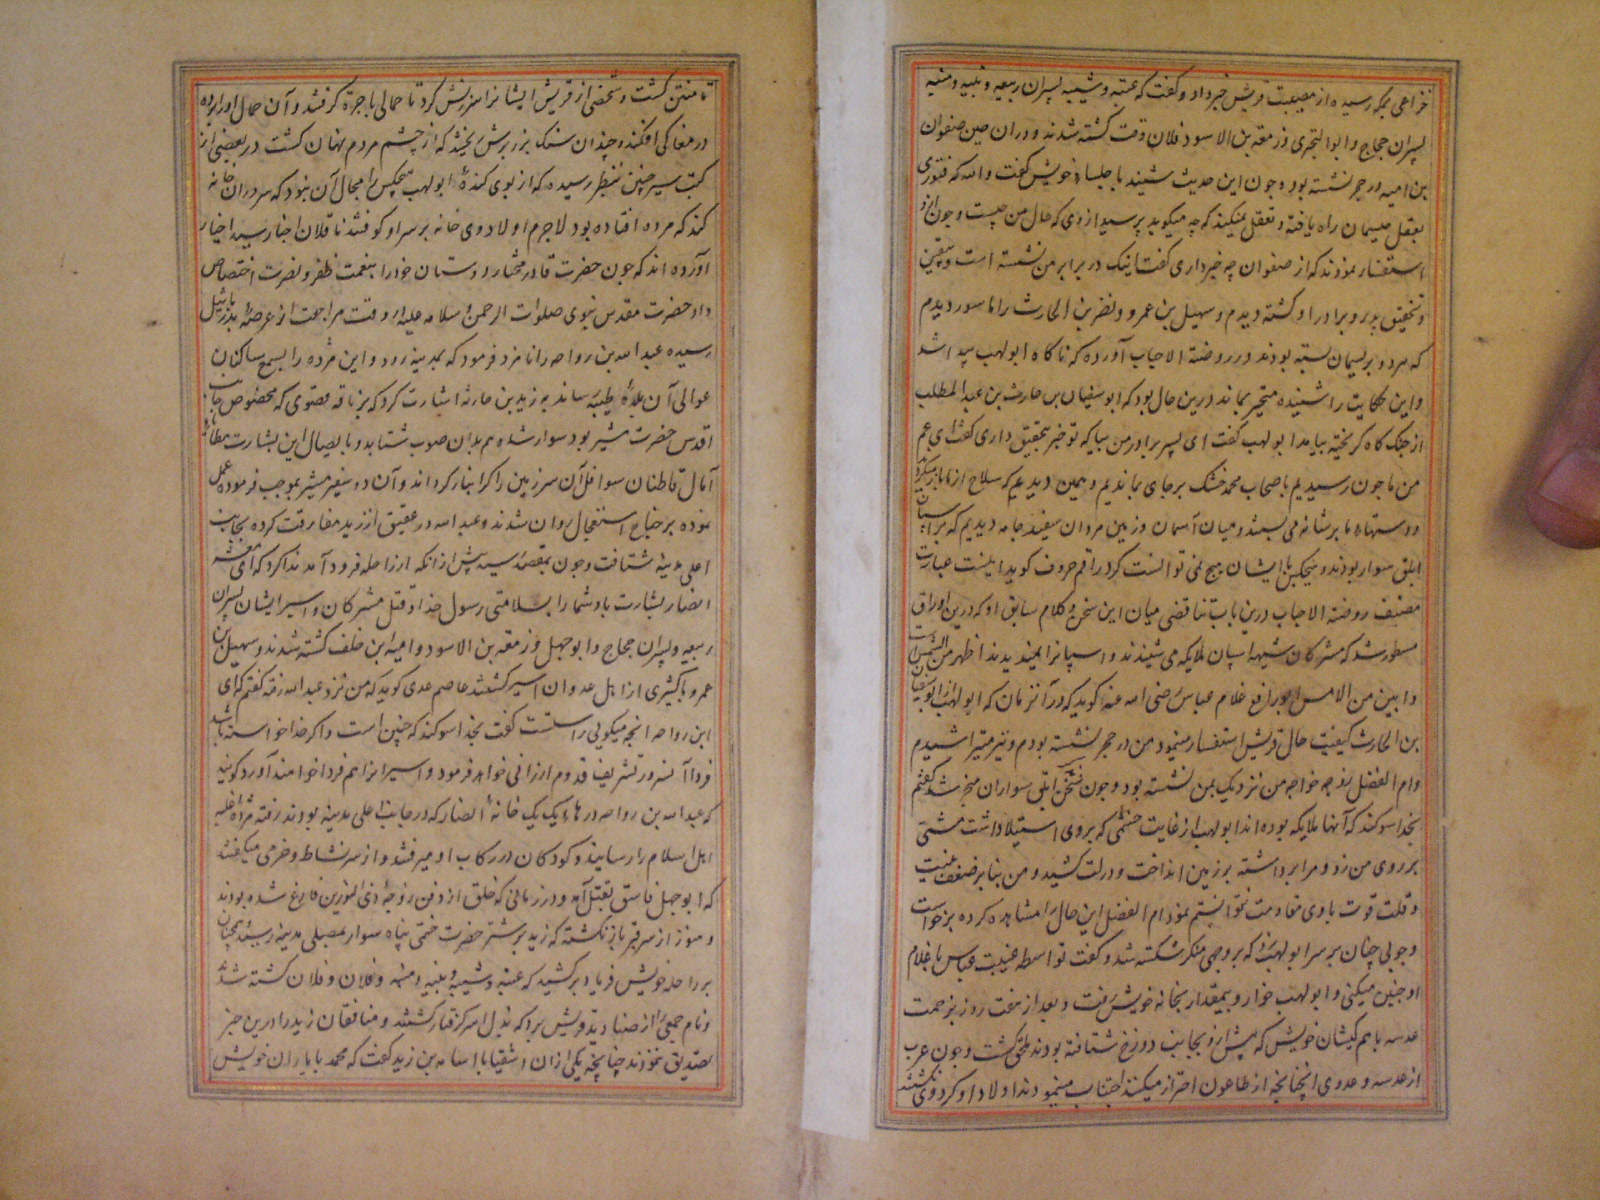 خزاعی بمکه رسیده از مصیبت قریش خبر داد و گفت که عتبه و شیبه پسران ربیعه و نبیه و منبه
پسران حجاج و ابوالبختری و زمعه بن الاسود فلان وقت کشته شدند و دران حین صفوان
بن امیه در حجر نشسته بود و چون این حدیث شنید با جلساء خویش گفت والله که فتوری
بعقل حیسمان راه یافته و تعقل نمیکند که چه میگوید پرسید از وی که حال من چیست و چون ازو
استفسار نمودند که از صفوان چه خبر داری گفت اینک در برابر من نشسته است و بیقین
و تحقیق پدر و برادر او کشته دیدم و سهیل بن عمرو و نضر بن الحارث را ماسور دیدم
که هردو بریسمان بسته بودند و در روضة الاحباب آورده که ناگاه ابولهب پیدا شد
و این حکایت را شنیده متحیر بماند درین حال بود که ابوسفیان بن حارث بن عبدالمطلب
از جنگ گاه گریخته بیامد ابولهب گفت ای پسر برادر من بیا که تو خبر بتحقیق داری گفت ای عم
من ما چون رسیدیم باصحاب محمد خشک بر جای بماندیم و همین دیدیم که سلاح از ما باز میکرد
و دستهاء ما بر شانه می بستند و میان آسمان و زمین مردان سفید جامه دیدیم که بر اسبان
ابلق سوار بودند و هیچکس با ایشان هیچ نمی توانست کرد راقم حروف گوید اینست عبارت
مصنف روضة الاحباب درین باب تناقضی میان این سخن و کلام سابق او که درین اوراق
مسطور شد که مشرکان شیهه اسپان ملایکه می شنیدند و اسپانرا نمیدیدند اظهر من الشمس است
و ابین من الامس ابو رافع غلام عباس رضی الله عنه گوید که در آنزمان که ابولهب از ابوسفیان
بن الحارث کیفیت حال قریش استفسار مینمود من در حجر نشسته بودم و تیر میتراشیدم
و ام الفضل زوجه خواجه من نزدیک بمن نشسته بود و چون سخن ابلق سواران منجر شد گفتم
بخدا سوگند که آنها ملایکه بوده اند ابولهب از غایت خشمی که بروی استیلا داشت مشتی
بر روی من زد و مرا برداشته بر زمین انداخت و در لت کشید و من بنابر ضعف بنیت
و قلت قوت با وی مقاومت نتوانستم نمود ام الفضل این حال را مشاهده کرده برخواست
و چوبی چنان بر سر ابولهب زد که بر وجهی منکر شکسته شد و گفت تو بواسطه غیبت عباس با غلام
او چنین میکنی و ابولهب خوار و بیمقدار بخانه خویش رفت و بعد از هفت روز بزحمت
عدسه با هم کیشان خویش که پیش ازو بجانب دوزخ شتافته بودند ملحق گشت و چون عرب
از عدسه و عدوی آنچنانچه از طاعون احتراز میکنند اجتناب مینمودند اولاد او گرد وی نگشتند
تا منتن گشت و شخصی از قریش ایشانرا سرزنش کرد تا حمالی باجرة گرفتند و آن حمال او را برده
در مغاکی افکند و چندان سنگ بر زبرش ریختند که از چشم مردم نهان گشت در بعضی از
کتب سیر چنین بنظر رسیده که از بوی گنده ابولهب هیچکس را مجال آن نبود که سر دران خانه
کند که مرده افتاده بود لاجرم اولاد وی خانه بر سر او کوفتند ناقلان اخبار سید اخیار
آورده اند که چون حضرت قادر مختار دوستان خود را بنعمت ظفر و نصرت اختصاص
داد حضرت مقدس نبوی صلوات الرحمن و سلامه علیه در وقت مراجعت از عرصه بدر باثیل
رسیده عبدالله بن رواحه را نامزد فرمود که بمدینه رود و این مژده را بسمع ساکنان
عوالی آن بلاد طیبه رساند به زید بن حارثه اشارت کرد که بر ناقه قصوی که مخصوص جناب
اقدس حضرت مشیر بود سوار شده هم بدان صوب شتابد و بایصال این بشارت مطایا
آمال قاطنان سوافل آن سرزمین را گرانبار گرداند و آن دو سفیر مشیر بموجب فرموده عمل
نموده بر جناح استعجال روان شدند و عبدالله در عقیق از زید مفارقت کرده بجانب
اعلی مدینه شتافت و چون بمقصد رسید پیش ازانکه از راحله فرود آمد ندا کرد که ای معشر
انصار بشارت باد شما را بسلامتی رسول خدا و قتل مشرکان و اسیر ایشان پسران
ربیعه و پسران حجاج و ابوجهل و زمعه بن الاسود و امیه بن خلف کشته شدند و سهیل بن
عمرو با کثیری از اهل عدوان اسیر گشتند عاصم عدی گوید که من نزد عبدالله رفته گفتم که ای
ابن رواحه آنچه میگویی راستست گفت بخدا سوگند که چنین است و اگر خدا خواسته باشد
فردا آنسرور تشریف قدوم ارزانی خواهد فرمود و اسیرانرا هم فردا خواهند آورد گویند
که عبدالله بن رواحه در هاء یک یک خانهٔ انصار که در جانب اعلی مدینه بودند رفته مژده غلبه
اهل اسلام را رسانید و کودکان در رکاب او میرفتند و از سر نشاط و خرمی میگفتند
که ابوجهل فاسق بقتل آمد و در زمانی که خلق از دفن زوجهٔ ذی النورین فارغ شده بودند
و هنوز از سر قبر باز نگشته که زید بر شتر حضرت ختمی پناه سوار بمصلی مدینه رسید و همچنان
بر راحله خویش فریاد برکشید که عتبه و شیبه و نبیه و منبه و فلان و فلان کشته شدند
و نام جمعی را از صنادید قریش برد که بذل اسر گرفتار گشتند و منافقان زید را درین خبر
تصدیق ننمودند چنانچه یکی ازان اشقیا با اسامه بن زید گفت که محمد با یاران خویش